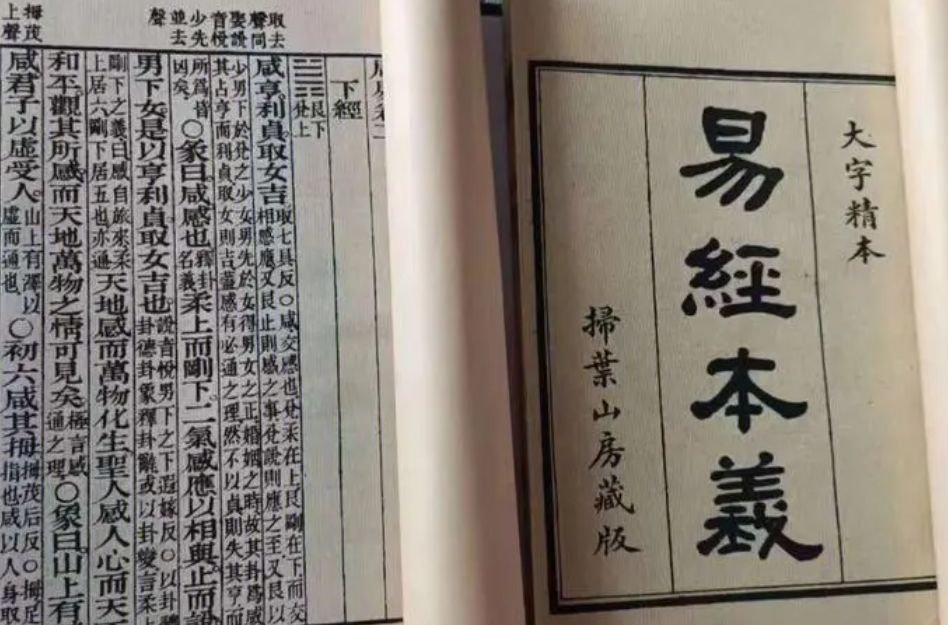 大字精本
易經本義
掃葉山房藏版
取去
聲同
娶說
音悅
少先
並去
聲
拇茂
上聲
下經
艮下
兌上
咸亨利貞取女吉取七具反○咸交感也兌柔在上艮剛在下而交
相感應又艮止則感之專兌說則應之至又艮以
少男下於兌之少女男先於女得男女之正婚姻之時故其卦爲咸
其占亨而利貞取女則吉蓋感有必通之理然不以貞則失其亨而
所爲皆
凶矣○彖曰咸感也釋卦
名義柔上而剛下二氣感應以相與止而說
男下女是以亨利貞取女吉也說音悅男下之下遐嫁反○以卦體
卦德卦象釋卦辭或以卦變言柔
剛下之義曰咸自旅來柔
上居六剛下居五也亦通天地感而萬物化生聖人感人心而天
和平觀其所感而天地萬物之情可見矣極言感
通之理○象曰山上有
咸君子以虛受人山上有澤以
虛而通也○初六咸其拇拇茂后反○拇足
指也咸以人身取